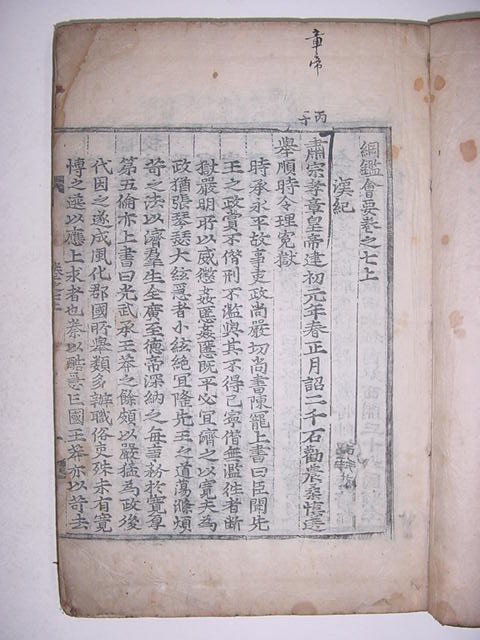 章帝
丙子
綱鑑會要卷之七上
漢紀
肅宗孝章皇帝建初元年春正月詔二千石勸農桑慎選
舉順時令理冤獄
時承永平故事吏政尚嚴切尚書陳寵上書曰臣聞先
王之政賞不僣刑不濫與其不得已寧僣無濫徃者斷
獄嚴明所以威懲姦慝姦慝既平必宜濟之以寬夫為
政猶張琴瑟大絃急者小絃絶宜隆先王之道蕩滌煩
苛之法以濟羣生全廣至德帝深納之每事務於寬厚
第五倫亦上書曰光武承王莽之餘頗以嚴猛為政後
代因之遂成風化郡國所舉類多辦職俗吏殊未有寬
博之選以應上求者也秦以酷急亡國王莽亦以苛法